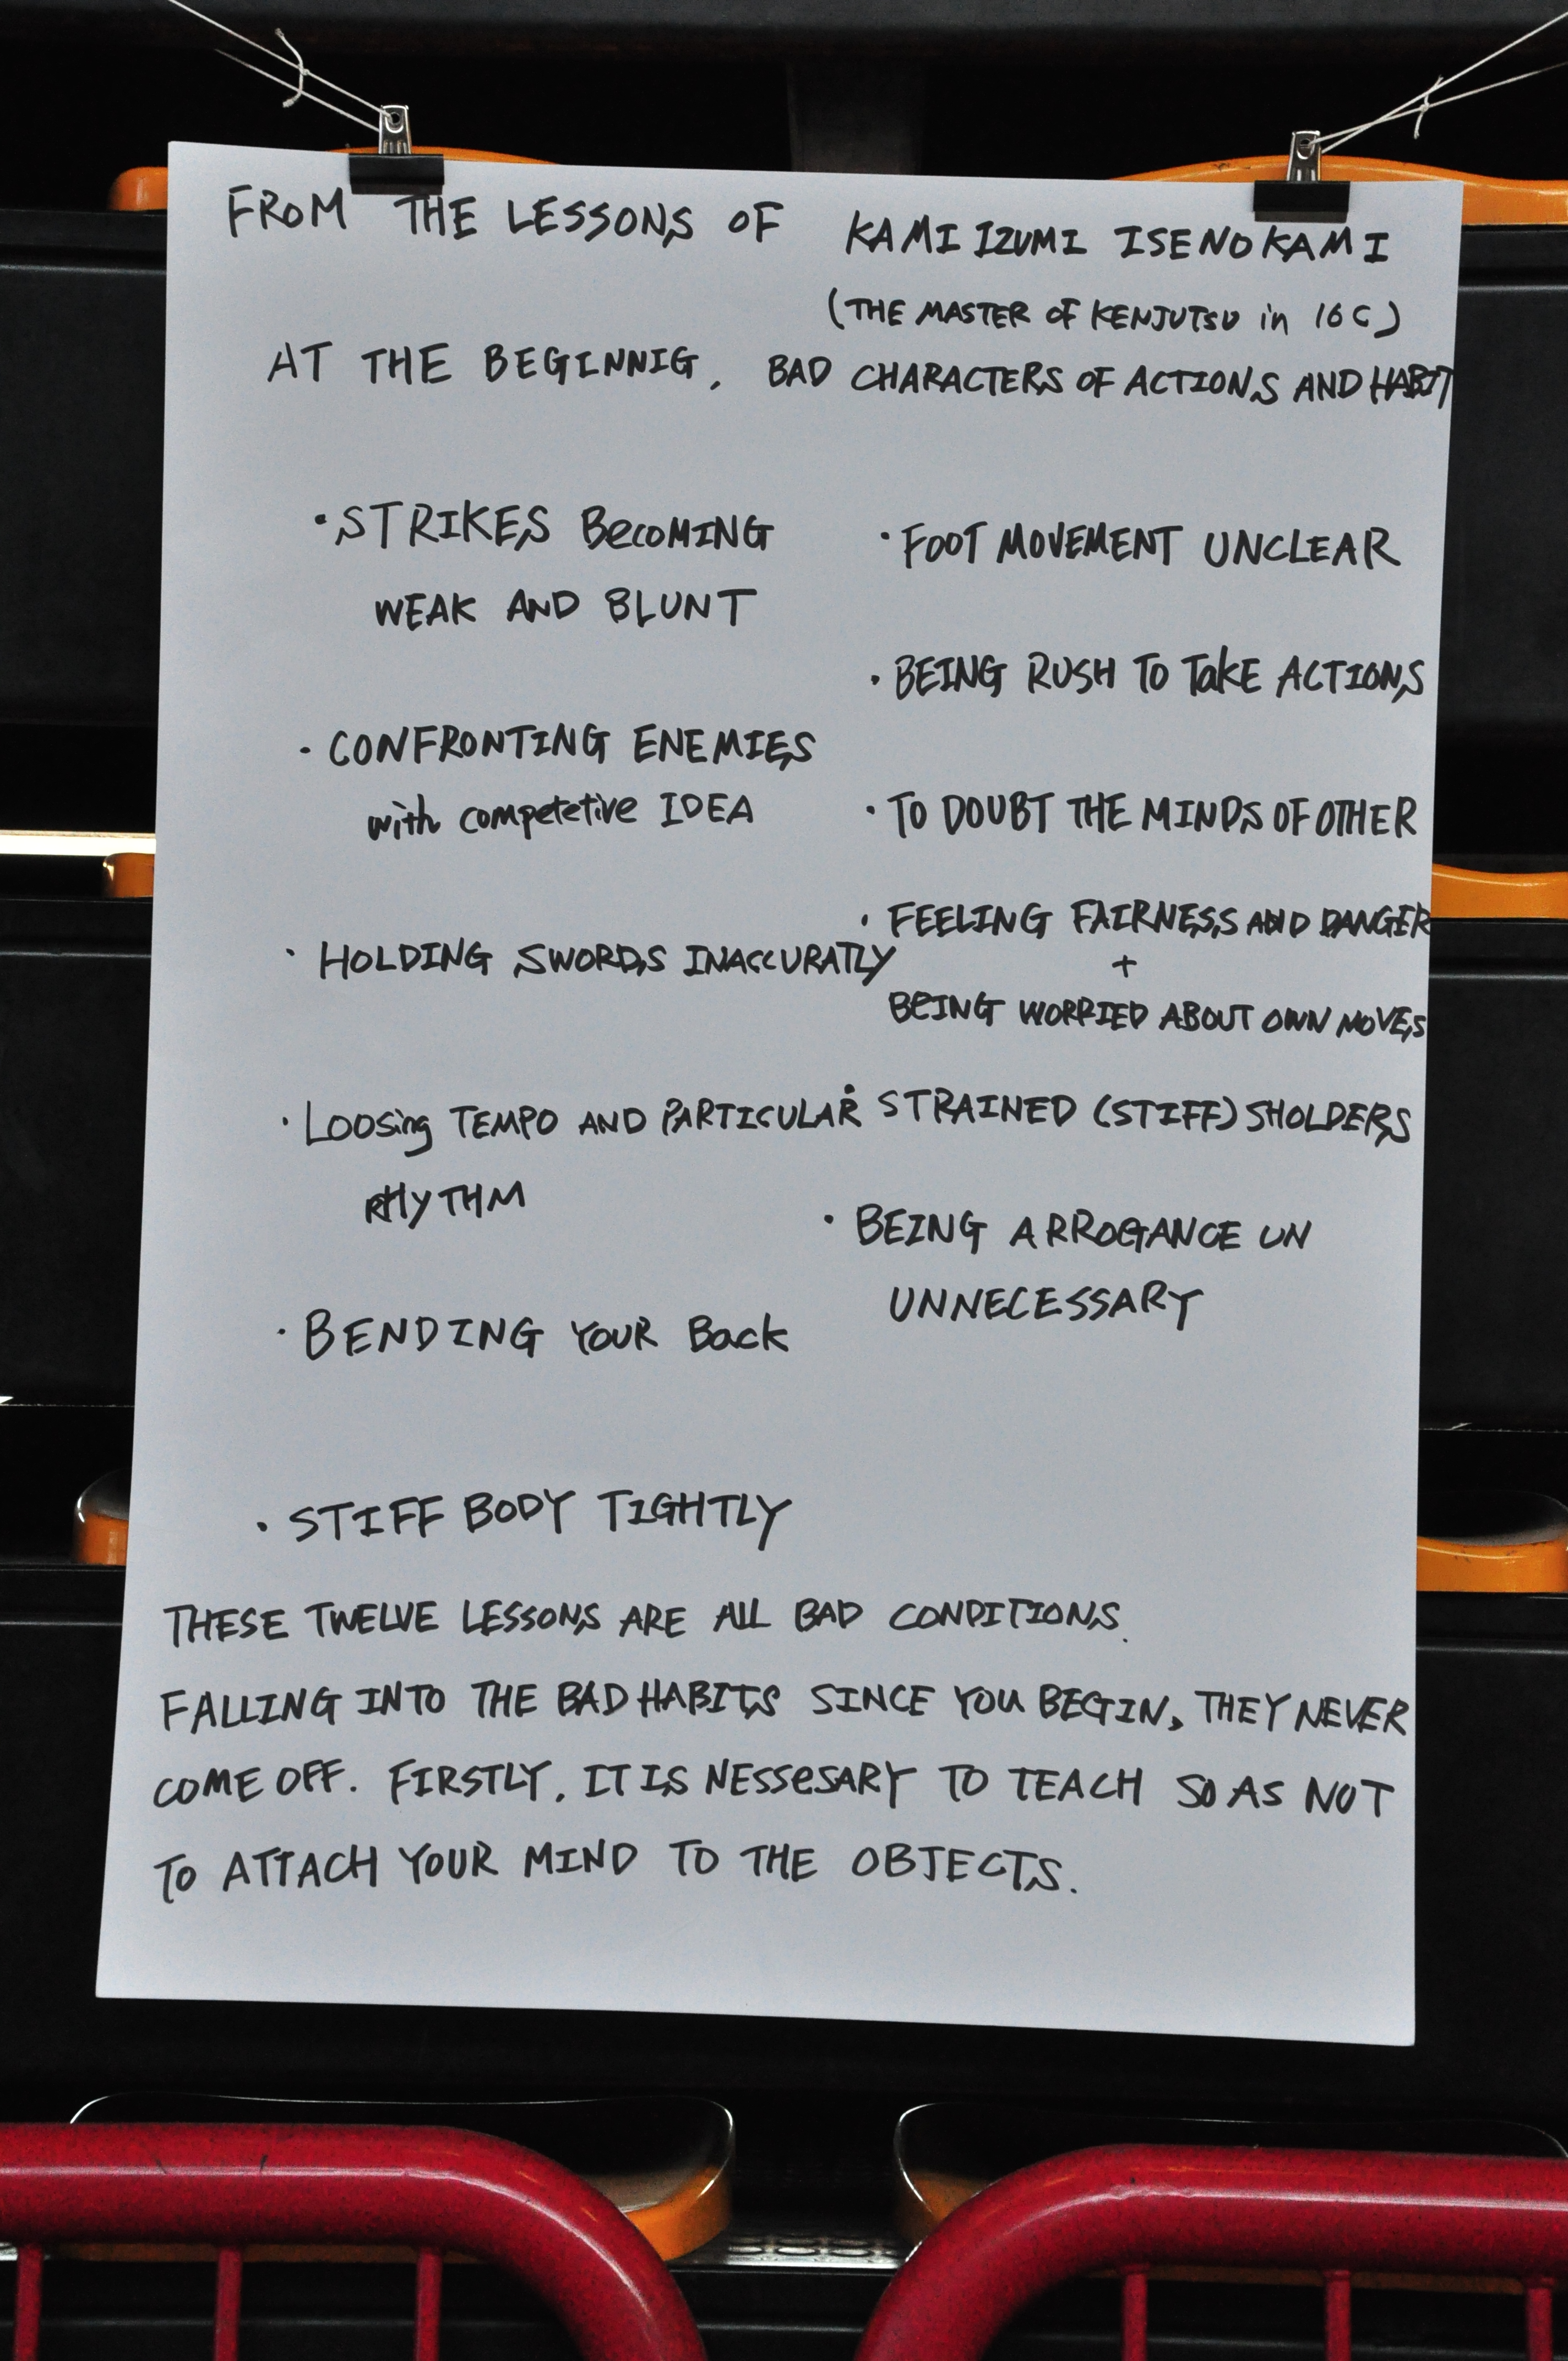 FROM THE LESSONS OF KAMIIZUMI ISENOKAMI
(THE MASTER OF KENJUTSU in 16C)
AT THE BEGINNIG, BAD CHARACTERS OF ACTIONS AND HABIT
• STRIKES BecoMING
WEAK AND BLUNT
• CONFRONTING ENEMIES
with competetive IDEA
• HOLDING SWORDS INACCURATLY
• Loosing TEMPO AND PARTICULAR
RHYTHM
• BENDING YOUR Back
• STIFF BODY TIGHTLY
• FOOT MOVEMENT UNCLEAR
• BEING RUSH TO TakE ACTIONS
• TO DOUBT THE MINDS OF OTHER
• FEELING FAIRNESS AND DANGER
+
BEING WORRIED ABOUT OWN MOVES
• STRAINED (STIFF) SHOLDERS
• BEING ARROGANCE UN
UNNECESSARY
THESE TWELVE LESSONS ARE ALL BAD CONDITIONS.
FALLING INTO THE BAD HABITS SINCE YOU BEGIN, THEY NEVER
COME OFF. FIRSTLY, IT IS NESSESARY TO TEACH SO AS NOT
TO ATTACH YOUR MIND TO THE OBJECTS.